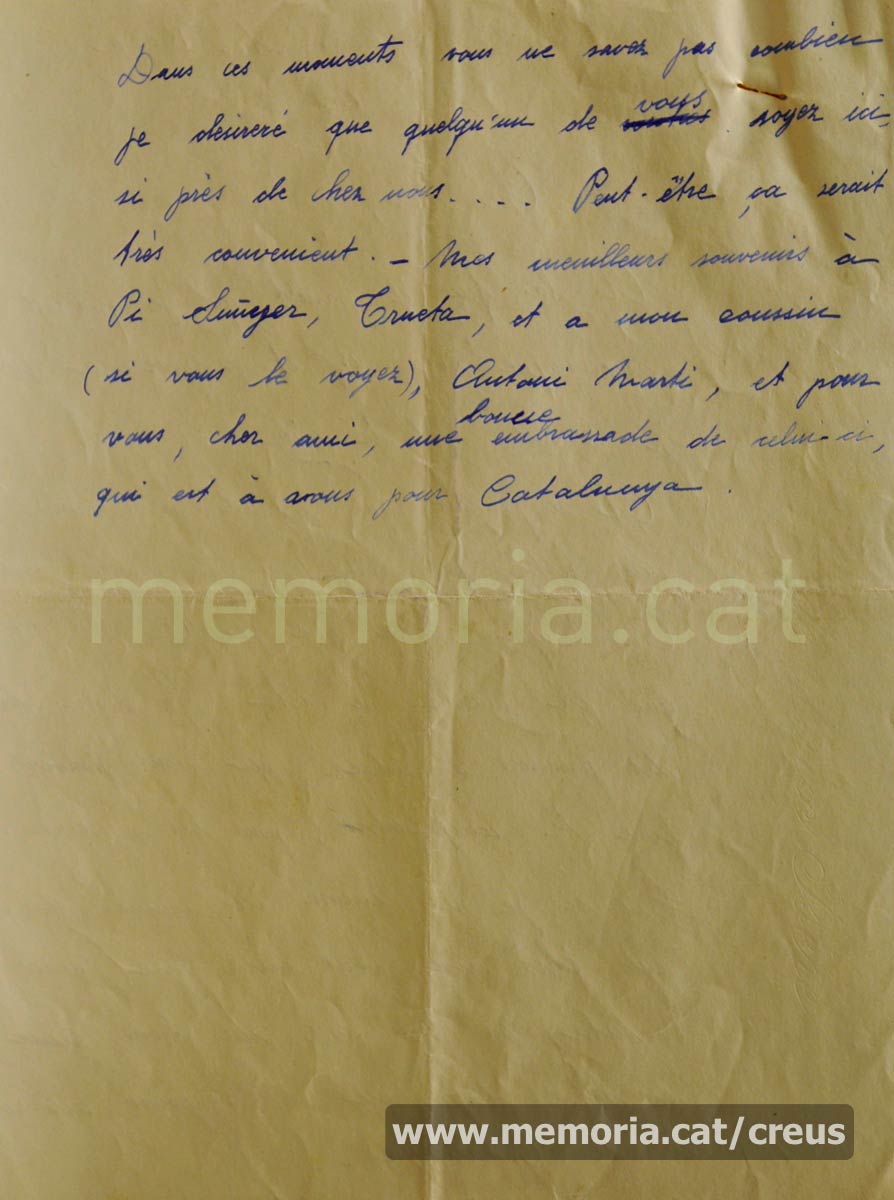 Dans ces moments vous ne savez pas combien
je desireré que quelqu'un de vous soyez ici,
si près de chez nous..... Peut-être ça serait
très convenient. - Mes meuilleurs souvenirs à
Pi Suñyer, Trueta, et a mon coussin
(si vous le voyez), Antoni Marti, et pour
vous, cher ami, une bonne embrassade de celui-ci,
qui est à vous pour Catalunya.
memoria.cat
www.memoria.cat/creus